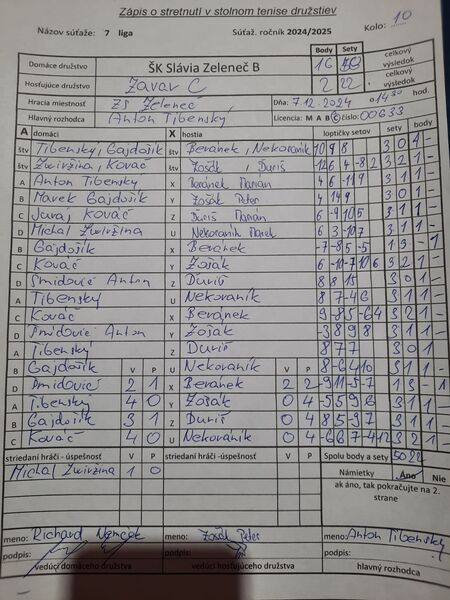 Zápis o stretnutí v stolnom tenise družstiev
Názov súťaže: 7 liga Súťaž. ročník 2024/2025 Kolo: 10
Body Sety celkový výsledok
Domáce družstvo ŠK Slávia Zeleneč B 16 50
Hosťujúce družstvo Zavar C 2 22 celkový výsledok
Hracia miestnosť ZŠ Zeleneč Dňa: 7.12.2024 o 14:30 hod.
Hlavný rozhodca Anton Tibenský Licencia: M A B C číslo: 00633
A domáci X hostia loptičky setov sety body
štv Tibenský, Gajdošík štv Beránek, Nekoraník 10 9 8 3 0 1 -
štv Zwirzina, Kováč štv Zošák, Ďuriš
A Anton Tibenský X Beránek Marian 3 1 1 -
B Marek Gajdošík Y Zošák Peter 3 0 1 -
C Juraj Kováč Z Ďuriš Marian 3 1 1 -
D Michal Zwirzina U Nekoraník Marek 6 -3 10 7 3 1 1 -
B Gajdošík X Beránek -7 -8 5 -5 1 3 - 1
C Kováč Y Zošák 3 2 1 -
D Smidovič Anton Z Ďuriš 8 8 15 3 0 1 -
A Tibenský U Nekoraník 8 7 -4 6 3 1 1 -
C Kováč X Beránek 3 2 1 -
D Smidovič Anton Y Zošák -3 8 9 8 3 1 1 -
A Tibenský Z Ďuriš 8 7 7 3 0 1
B Gajdošík V P U Nekoraník V P 8 -6 4 10 3 1 1 -
D Smidovič 2 1 X Beránek 2 2 -9 11 -5 -7 1 3 - 1
A Tibenský 4 0 Y Zošák 0 4 -5 5 9 6 3 1 1 -
B Gajdošík 3 1 Z Ďuriš 0 4 8 5 -9 7 3 1 1 -
C Kováč 4 0 U Nekoraník 0 4 3 2 1 -
striedaní hráči - úspešnosť V P striedaní hráči - úspešnosť V P Spolu body a sety 50 22
Michal Zwirzina 1 0 Námietky Áno Nie
ak áno, tak pokračujte na 2. strane
meno: Richard meno: Zošák Peter meno: Anton Tibenský
podpis: podpis: podpis:
vedúci domáceho družstva vedúci hosťujúceho družstva hlavný rozhodca